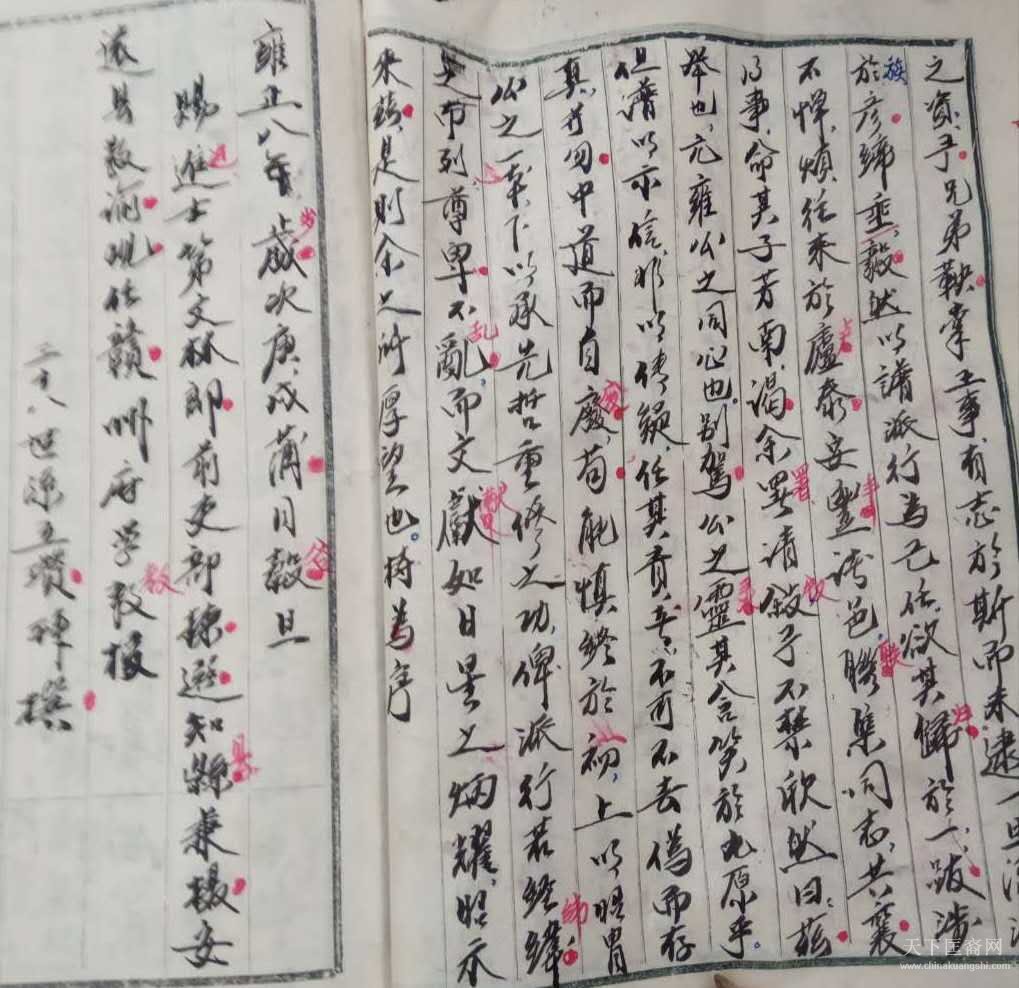 之資予兄弟鞅掌王事有志於斯而未逮一旦
族於彦綈垂毅然以譜派行為己任欲其歸於一跋涉
不憚煩往來於廬泰安豐諸邑聯集同志共襄
事命其子芳南渴余署请敘予不禁欣然曰兹
舉也亢雍公之同心也别駕公之靈其含笑於九原乎
但濟以示信非以傳疑任其責者不可不去偽而存
真并勿中道而自廢苟能慎終於初上以
公之一本下以承先哲重修之功俾派行若經緯
是而列尊卑不亂而文獻如日星之炳耀昭示
來兹是則余之所厚望也特為序
雍正八年歲次庚戌蒲月穀旦
賜進士第文林郎前吏部揀選知縣兼摄安
遠县教諭现任赣州府学教授
二十八世孫 撰
天下匡裔网
www.chinakuangshi.com